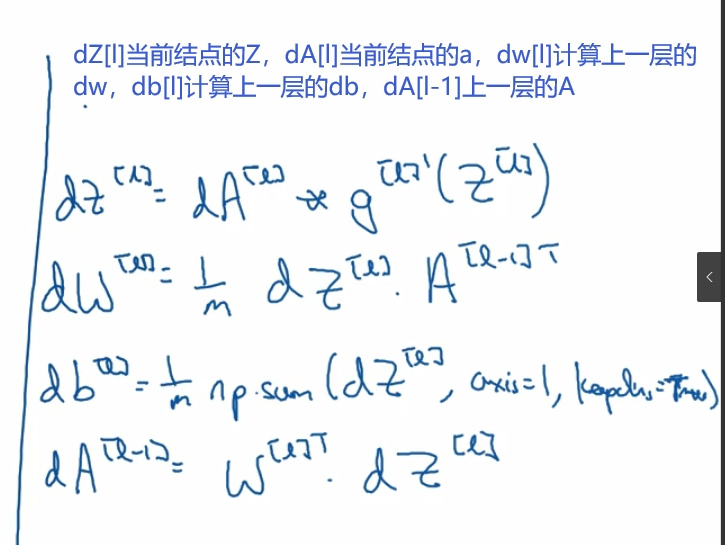 dZ[l]当前结点的Z，dA[l]当前结点的a，dw[l]计算上一层的
dw，db[l]计算上一层的db，dA[l-1]上一层的A
dZ^[l] = dA^[l] * g^[l]'(Z^[l])
dW^[l] = 1/m dZ^[l] · A^[l-1]T
db^[l] = 1/m np.sum(dZ^[l], axis=1, keepdims=True)
dA^[l-1] = W^[l]T · dZ^[l]